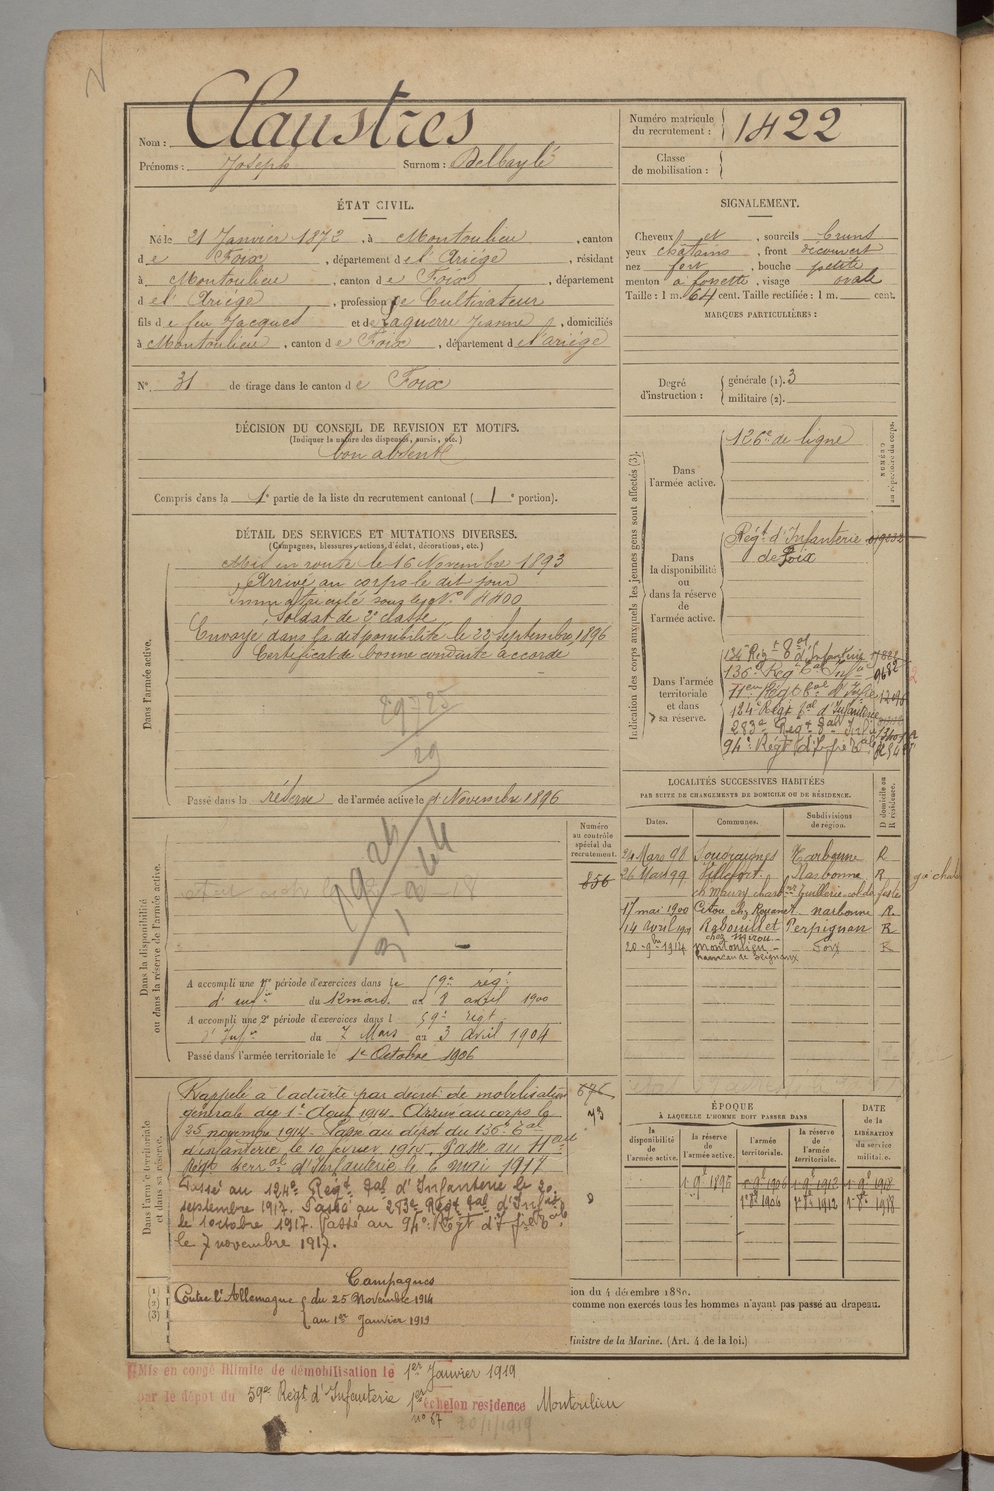 Nom : Claustres
Prénoms : Joseph Surnom : Delbaylé
Numéro matricule du recrutement : 1422
Classe de mobilisation :
ÉTAT CIVIL.
Né le 21 Janvier 1872, à Montoulieu, canton
de Foix, département de l'Ariége, résidant
à Montoulieu, canton de Foix, département
de l'Ariége, profession de Cultivateur
fils de feu Jacques et de Laguerre Jeanne, domiciliés
à Montoulieu, canton de Foix, département de l'ariége
N° 31 de tirage dans le canton de Foix
SIGNALEMENT.
Cheveux et, sourcils bruns
yeux chatains, front découvert
nez fort, bouche petite
menton à fossette, visage ovale
Taille : 1 m. 64 cent. Taille rectifiée : 1 m. cent.
MARQUES PARTICULIÈRES :
Degré d'instruction : générale (1). 3
militaire (2).
DÉCISION DU CONSEIL DE REVISION ET MOTIFS.
(Indiquer la nature des dispenses, sursis, etc.)
bon absent
Compris dans la 1e partie de la liste du recrutement cantonal (1e portion).
DÉTAIL DES SERVICES ET MUTATIONS DIVERSES.
(Campagnes, blessures, actions d'éclat, décorations, etc.)
Dans l'armée active.
Mis en route le 16 Novembre 1893
Arrivé au corps le dit jour
Immatriculé sous le N° 4400
Soldat de 2e classe
Envoyé dans la disponibilité le 22 Septembre 1896
Certificat de bonne conduite accordé
29725
29
Passé dans la réserve de l'armée active le 1 Novembre 1896
Dans la disponibilité ou dans la réserve de l'armée active.
Numéro au contrôle spécial du recrutement.
856
A accompli une 1re période d'exercices dans le 59e rég.
d'infrie du 12 mars au 8 avril 1900
A accompli une 2e période d'exercices dans l 59e régt
d'Infie du 7 Mars au 3 Avril 1904
Passé dans l'armée territoriale le 1er Octobre 1906
Dans l'armée territoriale et dans sa réserve.
Rappelé à l'activité par décret de mobilisation
générale du 1er Aout 1914. Arrivé au corps le
25 novembre 1914. Passé au dépot du 136e Eal
d'infanterie le 10 février 1917. Passé au 11eme
Régt terral d'Infanterie le 6 mai 1917
Passé au 124e Régt tal d'Infanterie le 20
septembre 1917. Passé au 283e Régt tal d'Infrie
le 1 octobre 1917. Passé au 94e Régt d'Ifrie tale
le 7 novembre 1917.
Campagnes
Contre l'Allemagne du 25 Novembre 1914
au 1er Janvier 1919
Mis en congé illimité de démobilisation le 1er Janvier 1919
par le dépôt du 59e Régt d'Infanterie 1er échelon résidence Montoulieu
n° 67 20/1/1919
Indication des corps auxquels les jeunes gens sont affectés (3).
NUMÉRO au répertoire du corps.
Dans l'armée active. 126e de ligne
Dans la disponibilité ou dans la réserve de l'armée active.
Régt d'Infanterie
de Foix
Dans l'armée territoriale et dans sa réserve.
134e Régt tal d'Infanterie
136e Régt tal Infie 9682
11em Régt tal d'Infie
124e Régt tal d'Infanterie
283e Régt tal Infie
94e Régt d'Ifrie tale
LOCALITÉS SUCCESSIVES HABITÉES
PAR SUITE DE CHANGEMENTS DE DOMICILE OU DE RÉSIDENCE.
Dates. Communes. Subdivisions de région. D domicile ou R résidence.
24 Mars 98 Narbonne R
26 Mars 99 Narbonne R
17 mai 1900 Citou chez Narbonne R
14 Avril 1901 Rabouillet Perpignan R
20 9bre 1914 Montoulieu Foix R
hameau de Seignaux
ÉPOQUE
À LAQUELLE L'HOMME DOIT PASSER DANS
la disponibilité de l'armée active. la réserve de l'armée active. l'armée territoriale. la réserve de l'armée territoriale.
DATE de la LIBÉRATION du service militaire.
1 9e 1896 1 9e 1906 1 9e 1912 1 9e 1918
1 8e 1906 1 8e 1912 1 8e 1918
ion du 4 décembre 1889.
comme non exercés tous les hommes n'ayant pas passé au drapeau.
Ministre de la Marine. (Art. 4 de la loi.)